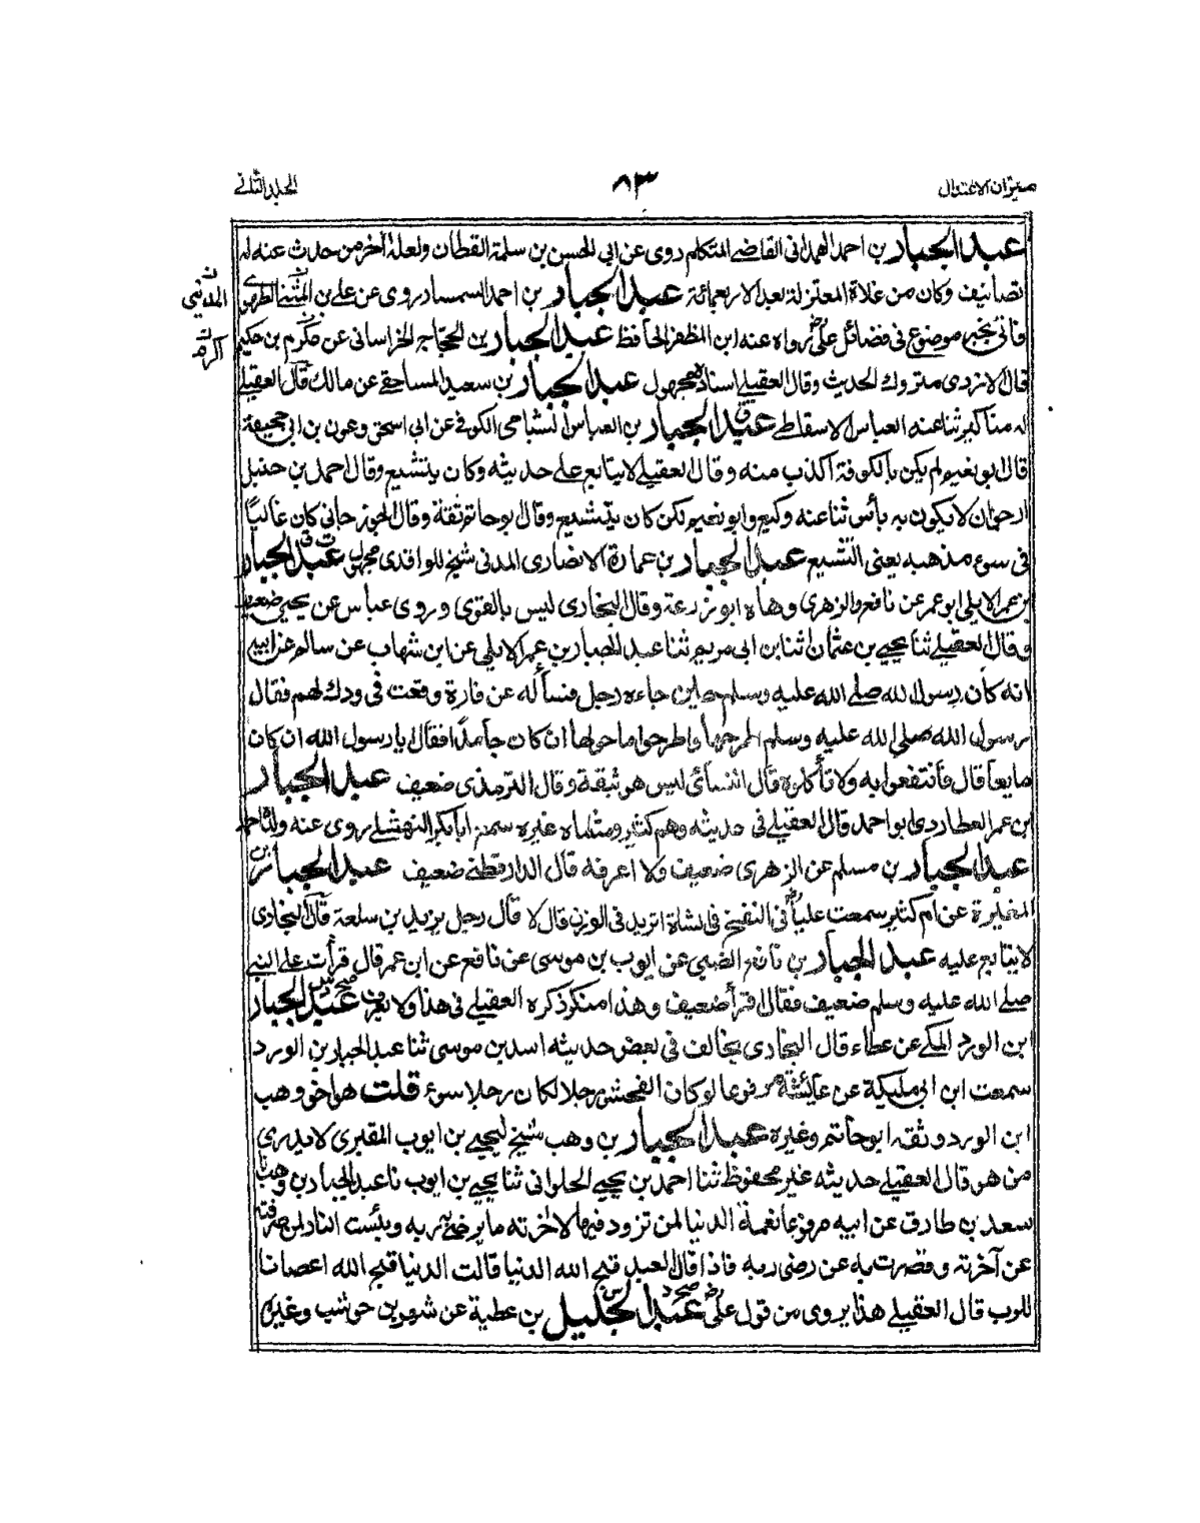 ميزان الاعتدال
٨٣
الجلد الثاني
عبد الجبار بن احمد الهمداني القاضي المتكلم روى عن ابي الحسن بن سلمة القطان ولعله آخر من حدث عنه له
تصانيف وكان من غلاة المعتزلة بعد الاربعمائة عبد الجبار بن احمد السمسار روى عن علي بن المثنى الطهوي
فاتى بخبر موضوع في فضائل علي رواه عنه ابن المظفر الحافظ عبد الجبار بن الحجاج الخراساني عن مكرم بن حكيم
قال الازدي متروك الحديث وقال العقيلي اسناده مجهول عبد الجبار بن سعيد المساحقي عن مالك قال العقيلي
له مناكير ثنا عنه العباس الاسفاطي عبد الجبار بن العباس الشبامي الكوفي عن ابي اسحق وعون بن ابي جحيفة
قال ابو نعيم لم يكن بالكوفة اكذب منه وقال العقيلي لا يتابع على حديثه وكان يتشيع وقال احمد بن حنبل
ارجو ان لا يكون به بأس ثنا عنه وكيع وابو نعيم لكن كان يتشيع وقال ابو حاتم ثقة وقال الجوزجاني كان غاليًا
في سوء مذهبه يعني التشيع عبد الجبار بن عمارة الانصاري المدني شيخ للواقدي مجهول عبد الجبار
بن عمر الايلي ابو عمر عن نافع والزهري وهاه ابو زرعة وقال البخاري ليس بالقوي وروى عباس عن يحيى ضعيف
وقال العقيلي ثنا يحيى بن عثمان ثنا ابن ابي مريم ثنا عبد الجبار بن عمر الايلي عن ابن شهاب عن سالم عن ابيه
انه كان رسول الله صلى الله عليه وسلم حين جاءه رجل فسأله عن فارة وقعت في ودك لهم فقال
رسول الله صلى الله عليه وسلم اطرحوها واطرحوا ما حولها ان كان جامدًا فقال يا رسول الله ان كان
مايعا قال فانتفعوا به ولا تأكلوه قال النسائي ليس هو بثقة وقال الترمذي ضعيف عبد الجبار
بن عمر العطاردي ابو احمد قال العقيلي في حديثه وهم كثير ومشاه غيره سمع ابا بكر النهشلي روى عنه ولده احمد
عبد الجبار بن مسلم عن الزهري ضعيف ولا اعرفه قال الدارقطني ضعيف عبد الجبار بن
المغيرة عن ام كثير سمعت عليا في النفخ في الشاة اتريد في الوزن قال لا قال رجل يزيد بن سلعة قال البخاري
لا يتابع عليه عبد الجبار بن نافع الضبي عن ايوب بن موسى عن نافع عن ابن عمر قال قرأت على النبي
صلى الله عليه وسلم ضعيف فقال اقرأ ضعيف وهذا منكر ذكره العقيلي في هذا ولا يعرف عبد الجبار
ابن الورد المكي عن عطاء قال البخاري يخالف في بعض حديثه اسد بن موسى ثنا عبد الجبار بن الورد
سمعت ابن ابي مليكة عن عائشة مرفوعا لو كان الفحش رجلا لكان رجلا سوء قلت هو اخو وهب
ابن الورد وثقه ابو حاتم وغيره عبد الجبار بن وهب شيخ ليحيى بن ايوب المقبري لا يدرى
من هو قال العقيلي حديثه غير محفوظ ثنا احمد بن يحيى الحلواني ثنا يحيى بن ايوب نا عبد الجبار بن وهب نا
سعد بن طارق عن ابيه مرفوعا نعمة الدنيا لمن تزود فيها لاخرته ما يرضي به ربه وبئست الدار لمن صرفته
عن آخرته وقصرت به عن رضى ربه فاذا قال العبد قبح الله الدنيا قالت الدنيا قبح الله اعصانا
للرب قال العقيلي هذا يروى من قول علي عبد الجليل بن عطية عن شهر بن حوشب وغيره